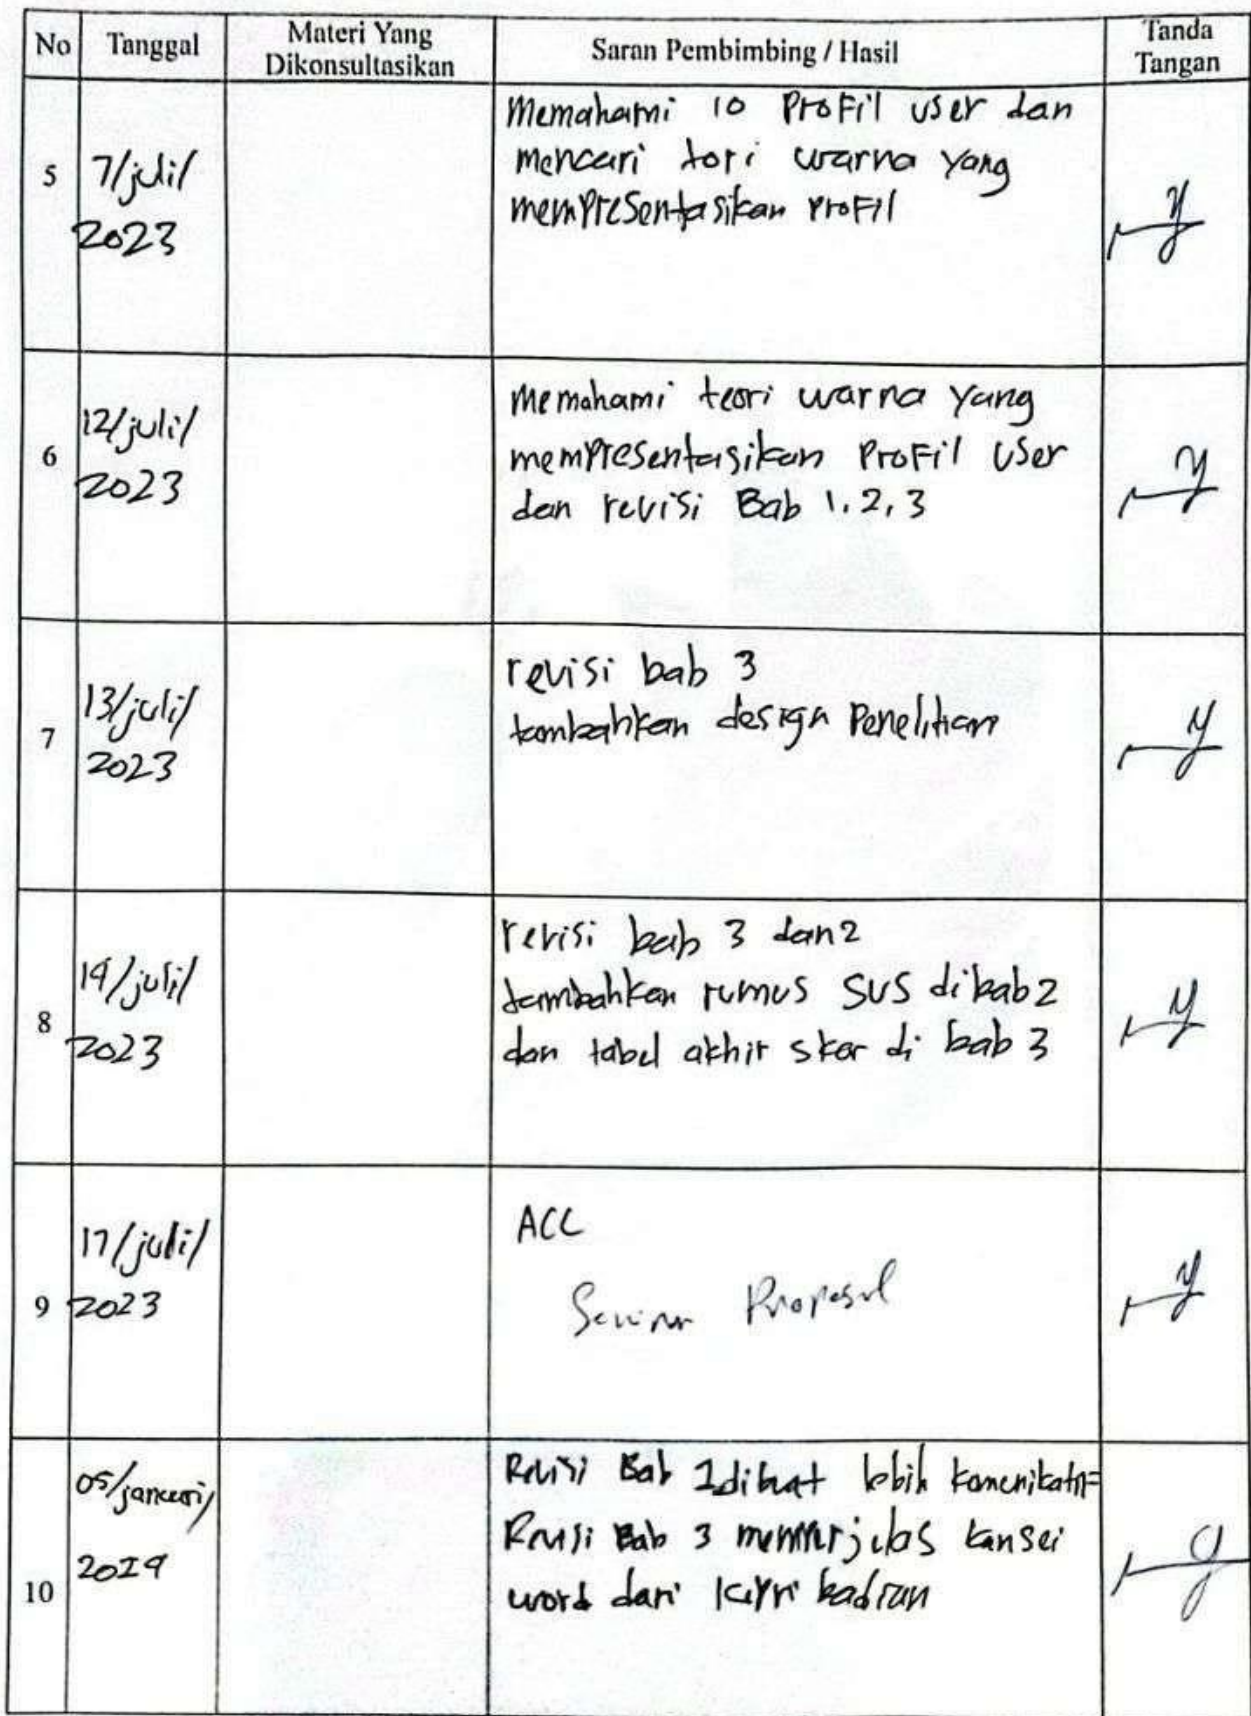 No Tanggal Materi Yang Dikonsultasikan Saran Pembimbing / Hasil Tanda Tangan
5 7/juli/ 2023
Memahami 10 Profil user dan
mencari tori warna yang
mempresentasikan profil
6 12/juli/ 2023
memahami teori warna yang
mempresentasikan Profil User
dan revisi Bab 1, 2, 3
7 13/juli/ 2023
revisi bab 3
tambahkan design Penelitian
8 14/juli/ 2023
revisi bab 3 dan 2
tambahkan rumus SUS di bab 2
dan tabel akhir skor di bab 3
9 17/juli/ 2023
ACC
Seminar Proposal
10 05/januari/
Revisi Bab dibuat lebih komunikatif
Revisi Bab 3 memperjelas kansei
word dari